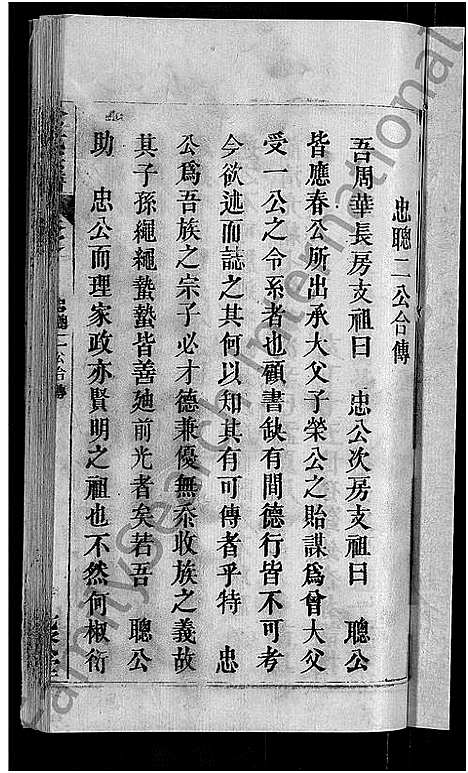 忠聰二公合傳
吾周華長房支祖曰 忠公次房支祖曰 聰公
皆應春公所出承大父子榮公之貽謀爲曾大父
受一公之令系者也顧書缺有間德行皆不可考
今欲述而誌之其何以知其有可傳者乎特 忠
公爲吾族之宗子必才德兼優無忝收族之義故
其子孫繩繩蟄蟄皆善廸前光者矣若吾 聰公
助 忠公而理家政亦賢明之祖也不然何椒衍
忠聰二公合傳
familysearch International